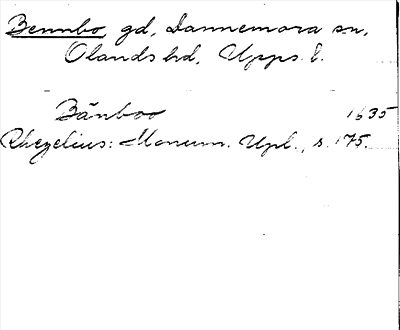 Bennbo, gd, Dannemora sn,
Olands hd, Upps. l.
Bänboo 1635
Rhezelius: Monum. Upl., s. 175.